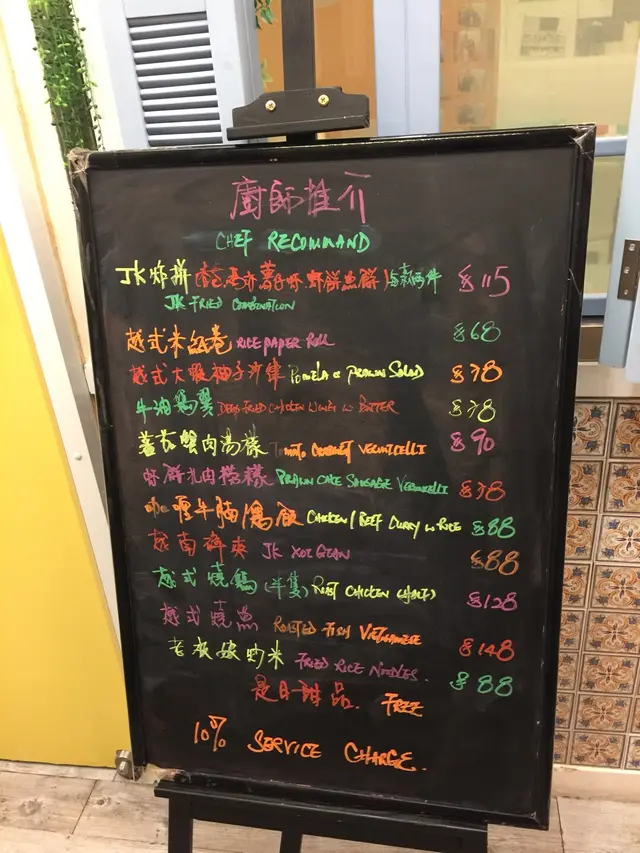 廚師推介
CHEF RECOMMAND
JK炸拼 蝦餅魚餅 $115
JK FRIED COMBINATION
越式米紙卷 RICE PAPER ROLL $68
越式大蝦柚子沙律 POMELO & PRAWN SALAD $78
牛油鷄翼 DEEP FRIED CHICKEN WINGS W BUTTER $78
蕃茄蟹肉湯檬 TOMATO CRABMEAT VERMICELLI $90
蝦餅扎肉撈檬 PRAWN CAKE SAUSAGE VERMICELLI $78
咖喱牛腩鷄飯 CHICKEN / BEEF CURRY W RICE $88
越南齋夾 JK $88
越式燒鷄 (半隻) ROAST CHICKEN (HALF) $128
越式燒魚 ROASTED FISH VIETNAMESE $148
老板娘炒米 FRIED RICE NOODLES. $88
是日甜品. FREE
10% SERVICE CHARGE.